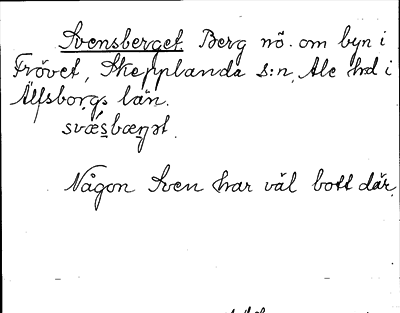 Svensberget Berg nö. om byn i
Frövet, Skepplanda s:n, Ale hd i
Älfsborgs län.
Någon Sven har väl bott där.